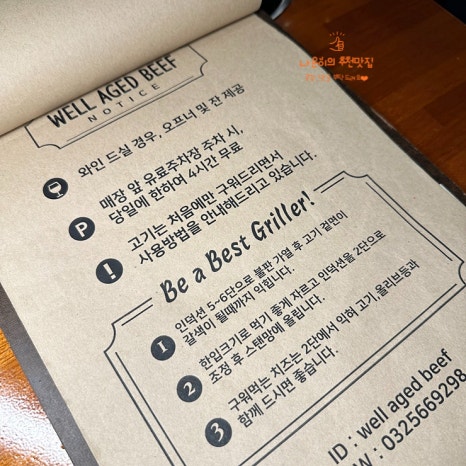 나오리의 푸천맛집
WELL AGED BEEF
NOTICE
와인 드실 경우, 오프너 및 잔 제공
P
매장 앞 유료주차장 주차 시,
당일에 한하여 4시간 무료
!
고기는 처음에만 구워드리면서
사용방법을 안내해드리고 있습니다.
Be a Best Griller!
1
인덕션 5~6단으로 불판 가열 후 고기 겉면이
갈색이 될때까지 익힙니다.
2
한입크기로 먹기 좋게 자르고 인덕션을 2단으로
조정 후 스탠망에 올립니다.
3
구워먹는 치즈는 2단에서 익혀 고기,올리브등과
함께 드시면 좋습니다.
ID : well aged beef
W : 0325669298